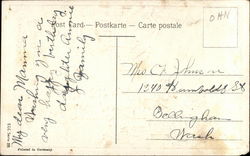 OHN
Post-card — Postkarte — Carte postale
My dear Mamma
Wishing you a
very happy birthday
daughter Annie
& family
Mrs C Johnson
1240 Humboldt St
Bellingham
Wash
Printed in Germany